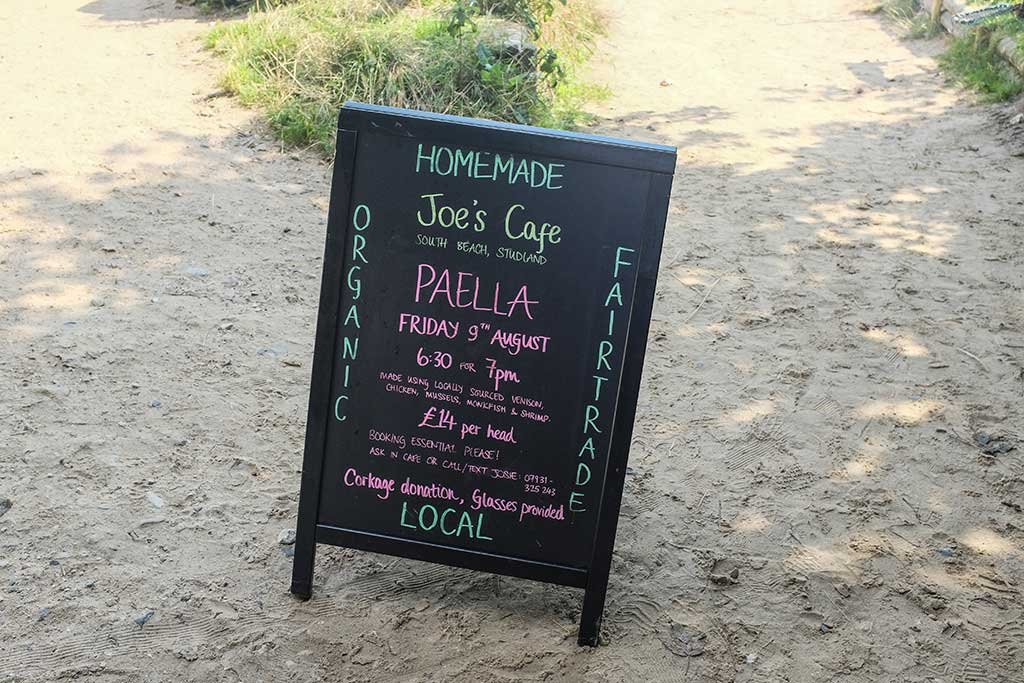 HOMEMADE
Joe's Cafe
SOUTH BEACH, STUDLAND
ORGANIC
FAIRTRADE
PAELLA
FRIDAY 9TH AUGUST
6:30 FOR 7pm
MADE USING LOCALLY SOURCED VENISON,
CHICKEN, MUSSELS, MONKFISH & SHRIMP.
£14 per head
BOOKING ESSENTIAL PLEASE!
ASK IN CAFE OR CALL/TEXT JOSIE: 07931-
325 243
Corkage donation, Glasses provided
LOCAL